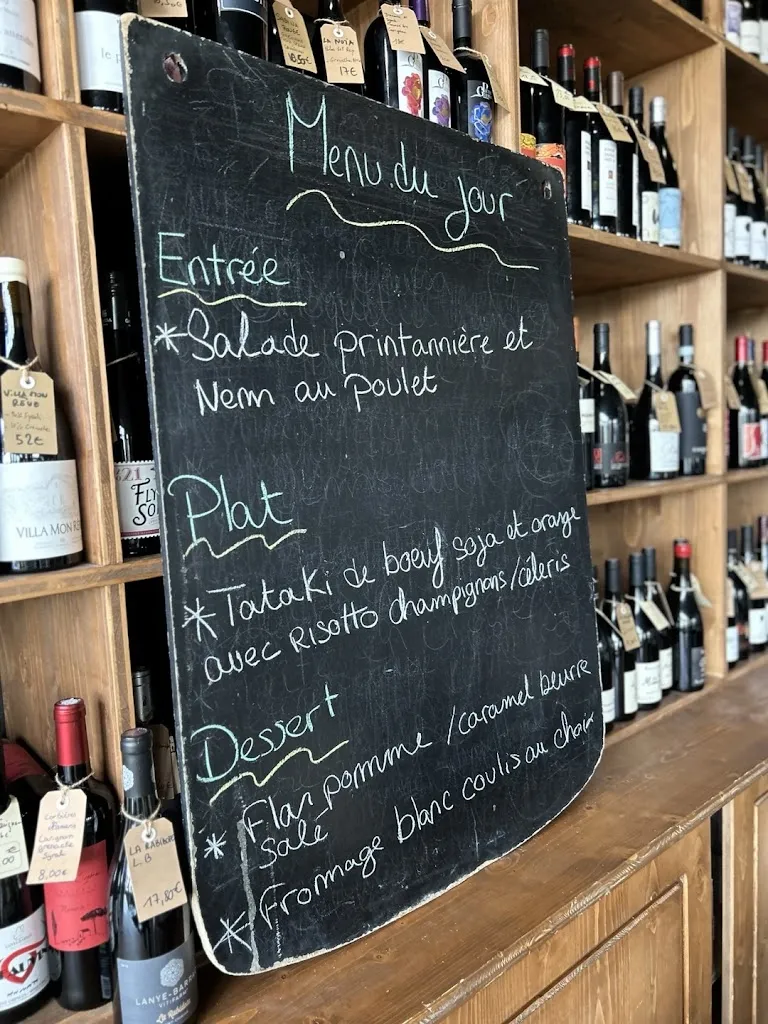 Menu du jour
Entrée
*Salade printannière et
Nem au poulet
Plat
*Tataki de boeuf soja et orange
avec Risotto champignons/céleris
Dessert
* Flan pomme /caramel beurre
salé
* Fromage blanc coulis au choix
VILLA MON
RÊVE
52€
VILLA MON RÊ
FLY
SO
LA NOIA
17€
18,50€
8,00€
LA RABIDORE
17,80€
LANYE-BARRAC
VITI